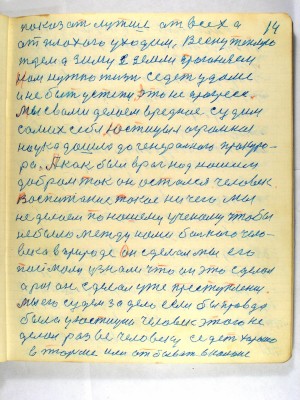 показат лучшие от всех а 14
от плохого уходим, Весну теплую
ждем а зиму с земли прогоняем
Нам нужно жить
и не быть у степи Это не прогресс.
Мы сами делаем вредное судим
самих себя, Юстиция огромная
наука дошла до генерального прокуро-
ра. А как были враг под нашим
добром так он остался человек
Воспитание такое ничего мы
не делаем по нашему ученому чтобы
небыло между нами такого чело-
века в природе Он сделал мы его
поймали узнали что он это сделал
а раз он сделал уже преступлени.
Мы его судим за дело если бы правда
была у юстиции человек этого не
делал разве человеку седет хорошо
в тюрьме или отбывать в колоне